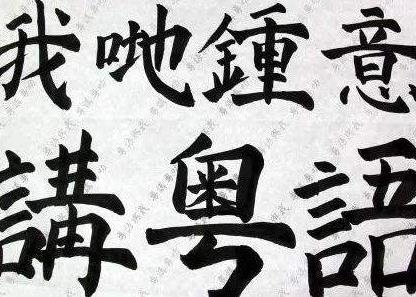 我哋鍾意
講粵語